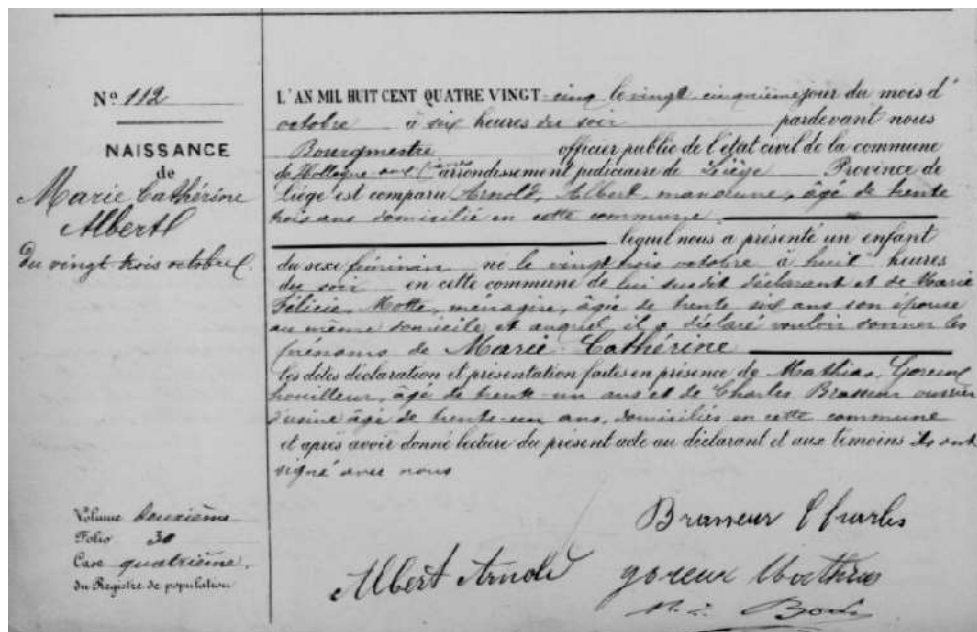 Nº 112
NAISSANCE
de
Marie Cathérine
Albert
du vingt trois octobre
L'AN MIL HUIT CENT QUATRE VINGT-cinq le vingt cinquième jour du mois d'
octobre à six heures du soir pardevant nous
Bourgmestre officier public de l'état civil de la commune
de Hollogne aux Pierres arrondissement judiciaire de Liège Province de
Liège est comparu Arnold, Albert, manœuvre, âgé de trente
trois ans domicilié en cette commune
lequel nous a présenté un enfant
du sexe féminin né le vingt trois octobre à huit heures
du soir en cette commune de lui susdit déclarant et de Marie
Félicie, Motte, ménagère, âgée de trente six ans son épouse
au même domicile et auquel il a déclaré vouloir donner les
prénoms de Marie Cathérine
les dites déclaration et présentation faites en présence de Mathias, Goreux
houilleur, âgé de trente-un ans et de Charles Brasseur ouvrier
d'usine âgé de trente-un ans, domiciliés en cette commune
et après avoir donné lecture du présent acte au déclarant et aux témoins ils ont
signé avec nous
Volume deuxième
Folio 30
Case quatrième
du Registre de population
Brasseur Charles
Albert Arnold
goreux Mathias